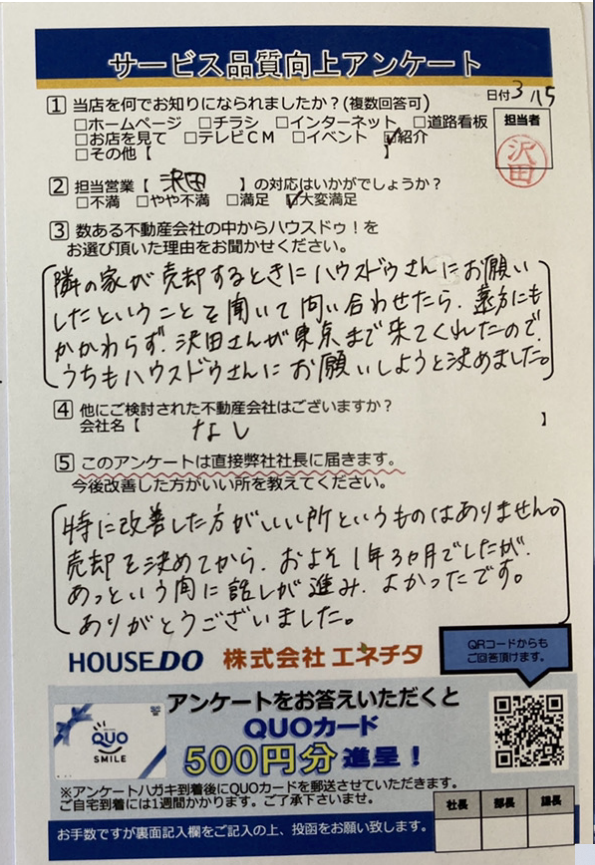 サービス品質向上アンケート
日付3/15
1 当店を何でお知りになられましたか？(複数回答可)
□ホームページ □チラシ □インターネット □道路看板
□お店を見て □テレビCM □イベント ☑紹介
□その他【 】
担当者
沢田
2 担当営業【 沢田 】の対応はいかがでしょうか？
□不満 □やや不満 □満足 ☑大変満足
3 数ある不動産会社の中からハウスドゥ！を
お選び頂いた理由をお聞かせください。
隣の家が売却するときにハウスドゥさんにお願い
したということを聞いて問い合わせたら、遠方にも
かかわらず、沢田さんが東京まで来てくれたので、
うちもハウスドゥさんにお願いしようと決めました。
4 他にご検討された不動産会社はございますか？
会社名【 なし 】
5 このアンケートは直接弊社社長に届きます。
今後改善した方がいい所を教えてください。
特に改善した方がいいい所というものはありません。
売却を決めてから、およそ1年3ヵ月でしたが、
あっという間に話しが進み、よかったです。
ありがとうございました。
HOUSE DO 株式会社 エネチタ
QRコードからも
ご回答頂けます。
アンケートをお答えいただくと
QUOカード
500円分 進呈！
QUO
SMILE
※アンケートハガキ到着後にQUOカードを郵送させていただきます。
ご自宅到着には1週間かかります。ご了承下さいませ。
社長 部長 課長
お手数ですが裏面記入欄をご記入の上、投函をお願い致します。